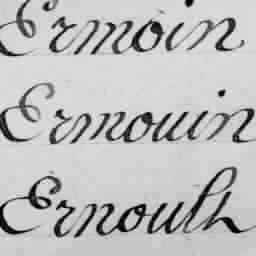 Ermoin
Ermouin
Ernoult